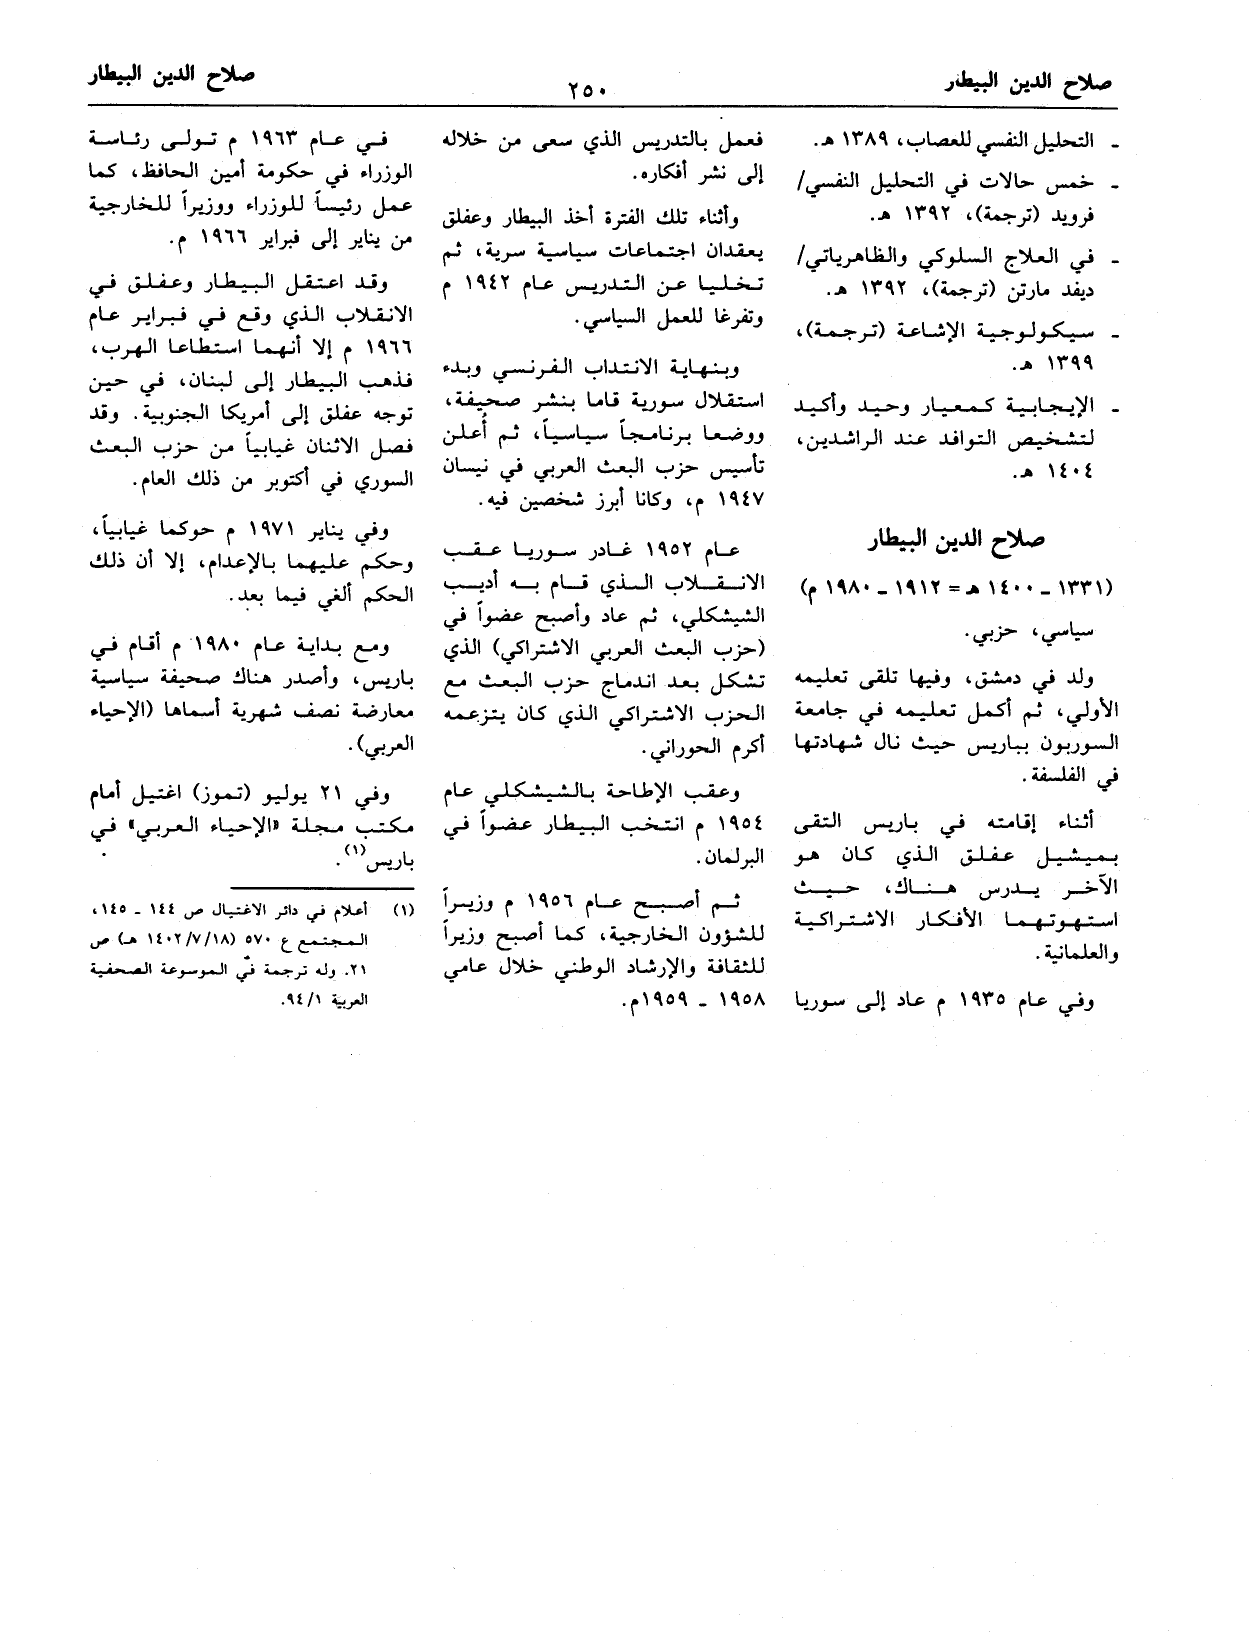 صلاح الدين البيطار
٢٥٠
صلاح الدين البيطار
ـ التحليل النفسي للعصاب، ١٣٨٩ هـ.
ـ خمس حالات في التحليل النفسي/
فرويد (ترجمة)، ١٣٩٢ هـ.
ـ في العلاج السلوكي والظاهرياتي/
ديفد مارتن (ترجمة)، ١٣٩٢ هـ.
ـ سيكولوجية الإشاعة (ترجمة)،
١٣٩٩ هـ.
ـ الإيجابية كمعيار وحيد وأكيد
لتشخيص التوافد عند الراشدين،
١٤٠٤ هـ.
صلاح الدين البيطار
(١٣٣١ ـ ١٤٠٠ هـ = ١٩١٢ ـ ١٩٨٠ م)
سياسي، حزبي.
ولد في دمشق، وفيها تلقى تعليمه
الأولي، ثم أكمل تعليمه في جامعة
السوربون بباريس حيث نال شهادتها
في الفلسفة.
أثناء إقامته في باريس التقى
بميشيل عفلق الذي كان هو
الآخر يدرس هناك، حيث
استهوتهما الأفكار الاشتراكية
والعلمانية.
وفي عام ١٩٣٥ م عاد إلى سوريا
فعمل بالتدريس الذي سعى من خلاله
إلى نشر أفكاره.
وأثناء تلك الفترة أخذ البيطار وعفلق
يعقدان اجتماعات سياسية سرية، ثم
تخليا عن التدريس عام ١٩٤٢ م
وتفرغا للعمل السياسي.
وبنهاية الانتداب الفرنسي وبدء
استقلال سورية قاما بنشر صحيفة،
ووضعا برنامجاً سياسياً، ثم أُعلن
تأسيس حزب البعث العربي في نيسان
١٩٤٧ م، وكانا أبرز شخصين فيه.
عام ١٩٥٢ غادر سوريا عقب
الانقلاب الذي قام به أديب
الشيشكلي، ثم عاد وأصبح عضواً في
(حزب البعث العربي الاشتراكي) الذي
تشكل بعد اندماج حزب البعث مع
الحزب الاشتراكي الذي كان يتزعمه
أكرم الحوراني.
وعقب الإطاحة بالشيشكلي عام
١٩٥٤ م انتخب البيطار عضواً في
البرلمان.
ثم أصبح عام ١٩٥٦ م وزيراً
للشؤون الخارجية، كما أصبح وزيراً
للثقافة والإرشاد الوطني خلال عامي
١٩٥٨ ـ ١٩٥٩م.
في عام ١٩٦٣ م تولى رئاسة
الوزراء في حكومة أمين الحافظ، كما
عمل رئيساً للوزراء ووزيراً للخارجية
من يناير إلى فبراير ١٩٦٦ م.
وقد اعتقل البيطار وعفلق في
الانقلاب الذي وقع في فبراير عام
١٩٦٦ م إلا أنهما استطاعا الهرب،
فذهب البيطار إلى لبنان، في حين
توجه عفلق إلى أمريكا الجنوبية. وقد
فصل الاثنان غيابياً من حزب البعث
السوري في أكتوبر من ذلك العام.
وفي يناير ١٩٧١ م حوكما غيابياً،
وحكم عليهما بالإعدام، إلا أن ذلك
الحكم ألغي فيما بعد.
ومع بداية عام ١٩٨٠ م أقام في
باريس، وأصدر هناك صحيفة سياسية
معارضة نصف شهرية أسماها (الإحياء
العربي).
وفي ٢١ يوليو (تموز) اغتيل أمام
مكتب مجلة «الإحياء العربي» في
باريس(١).
(١) أعلام في دائر الاغتيال ص ١٤٤ ـ ١٤٥،
المجتمع ع ٥٧٠ (١٤٠٢/٧/١٨ هـ) ص
٢١. وله ترجمة في الموسوعة الصحفية
العربية ٩٤/١.